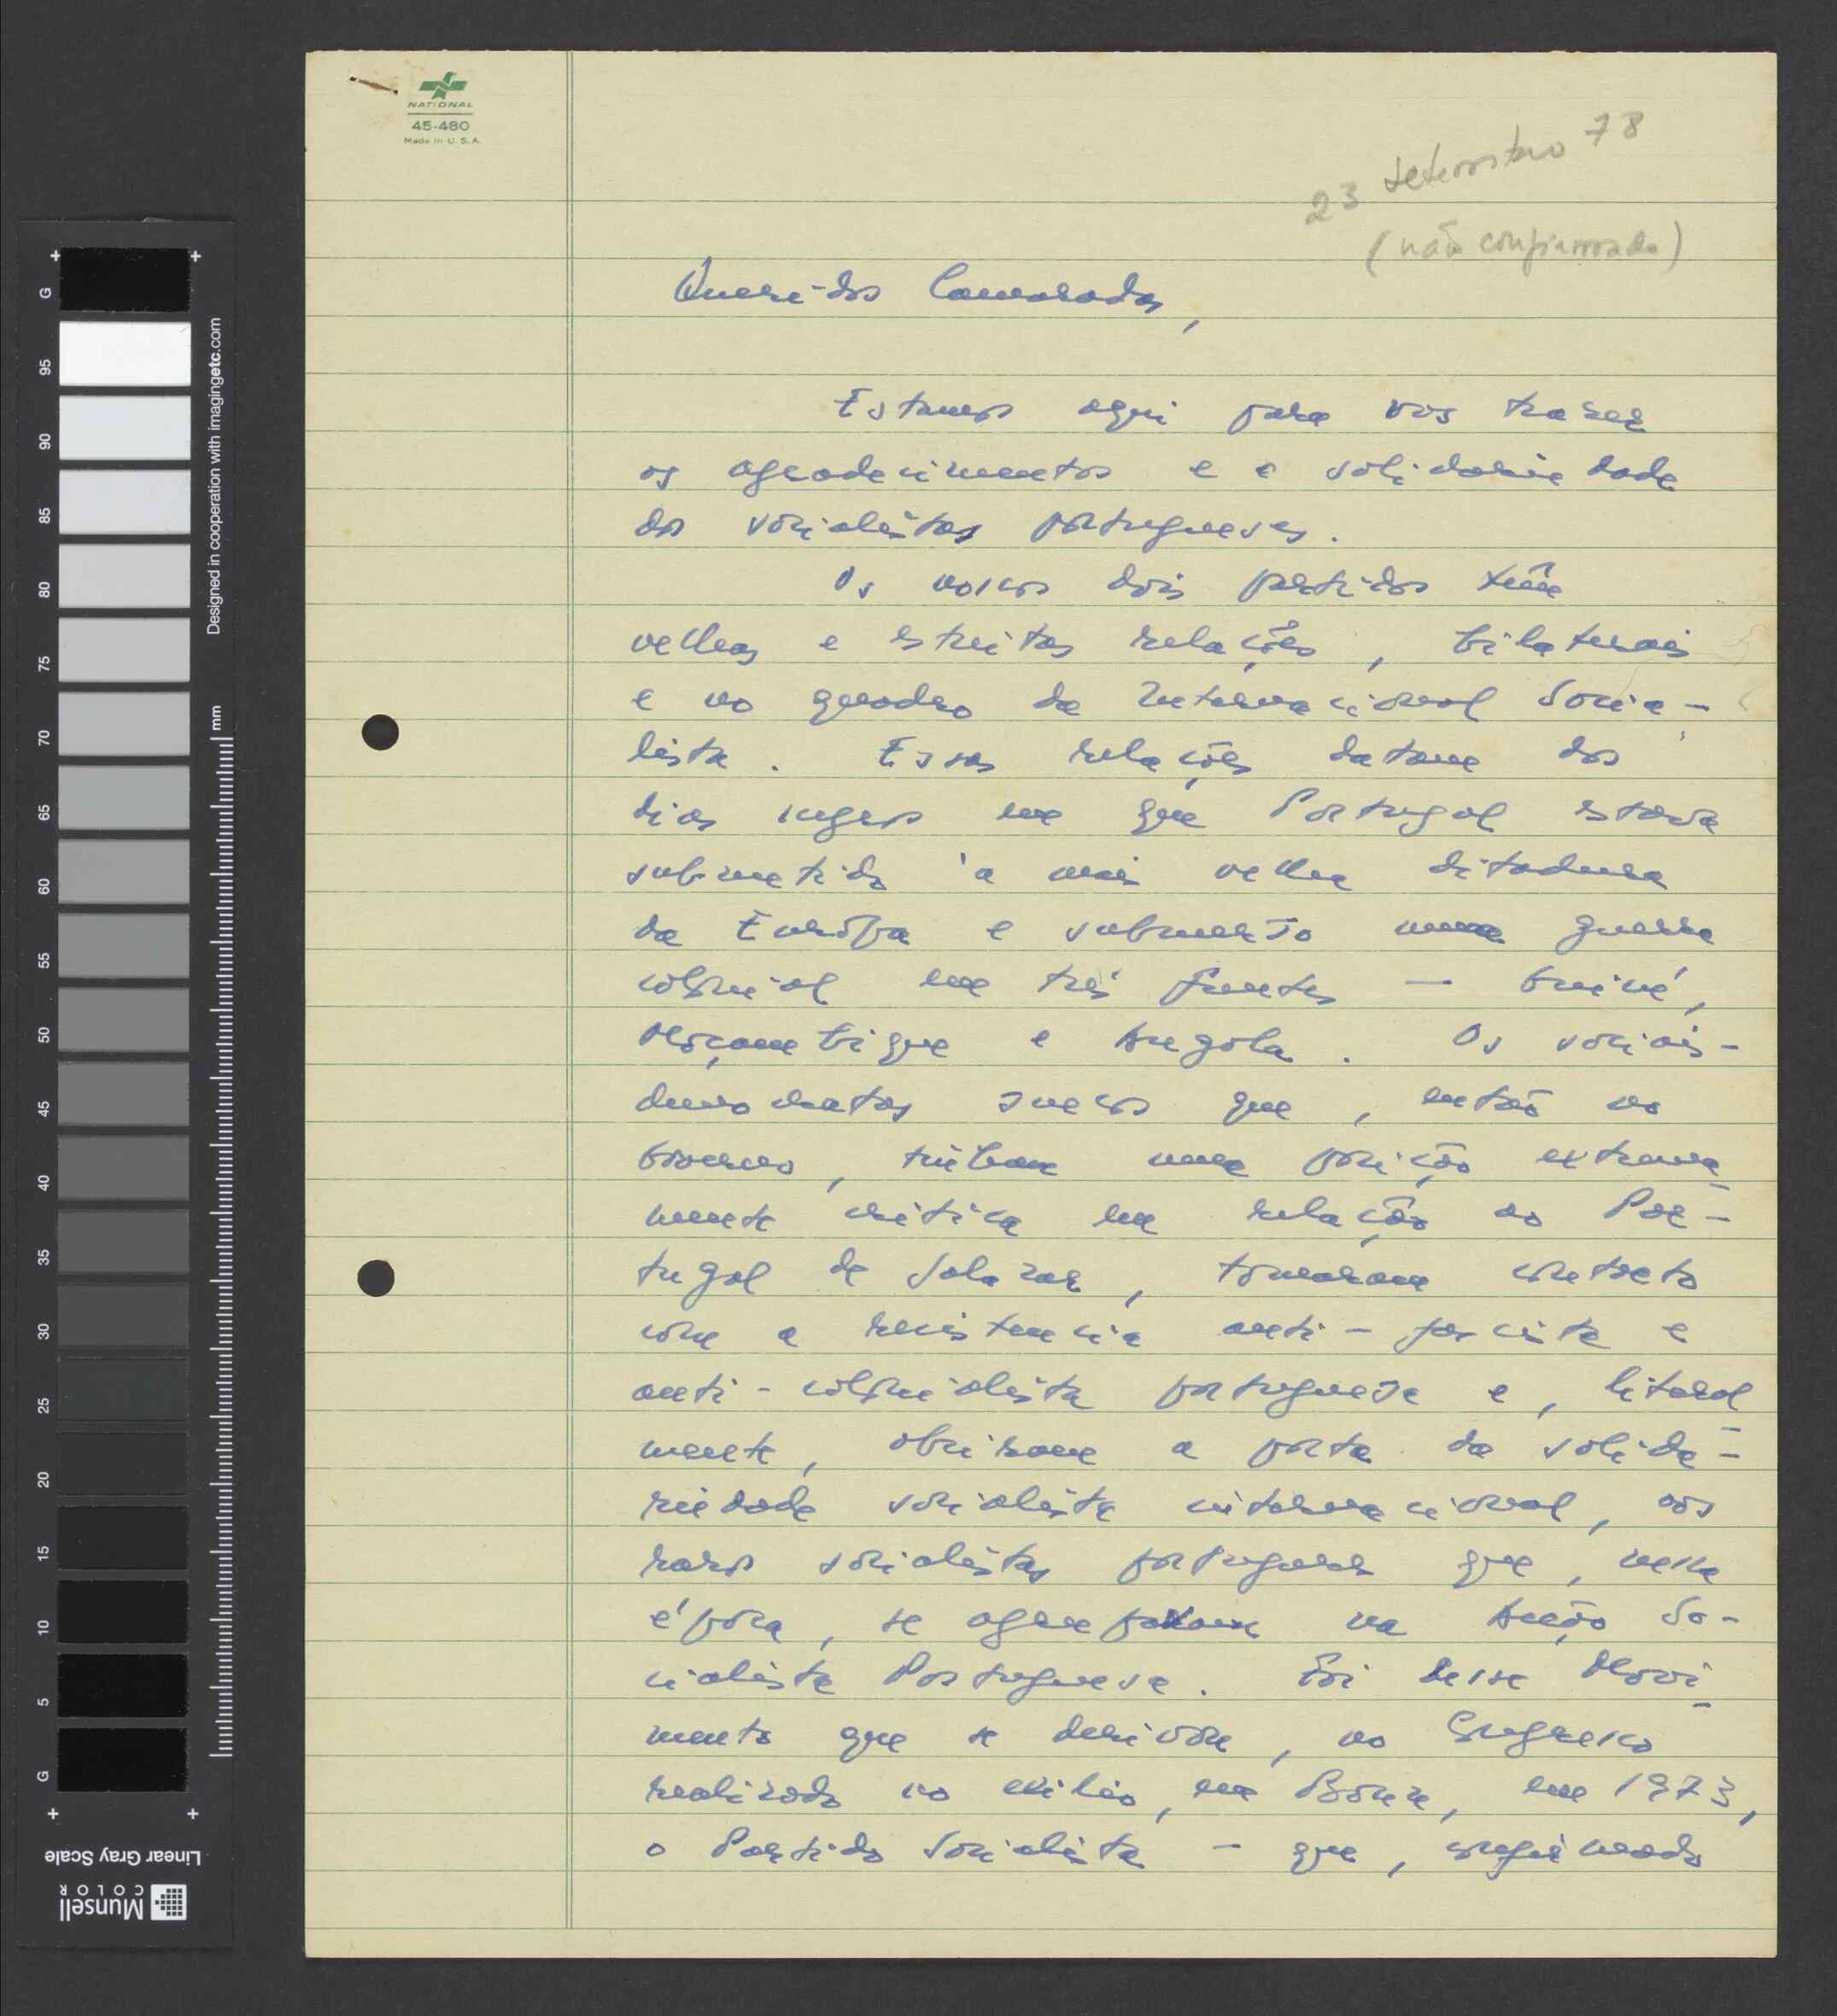 NATIONAL
45-480
Made in U.S.A.
23 setembro 78
(não confirmada)
Queridos Camaradas,
Estamos aqui para vos trazer
os agradecimentos e a solidariedade
dos socialistas portugueses.
Os nossos dois partidos têm
velhas e estreitas relações, bilaterais
e no quadro da Internacional Socia-
lista. Essas relações datam dos
dias negros em que Portugal estava
submetido à mais velha ditadura
da Europa e submerso numa guerra
colonial em três frentes — Guiné,
Moçambique e Angola. Os sociais-
democratas suecos que, então no
Governo, tinham uma posição extrema-
mente crítica em relação ao Por-
tugal de Salazar, tomaram contacto
com a resistencia anti-fascista e
anti-colonialista portuguesa e, literal-
mente, abriram a porta da solida-
riedade socialista internacional, aos
raros socialistas portugueses que, nessa
época, se agrupavam na Acção So-
cialista Portuguesa. Foi desse Movi-
mento que se derivou, no Congresso
realizado no exílio, em Bonn, em 1973,
o Partido Socialista - que, confirmado
Designed in cooperation with imagingetc.com
mm
G
95
90
85
80
75
70
65
60
55
50
45
40
35
30
25
20
15
10
5
G
Linear Gray Scale
Munsell
COLOR